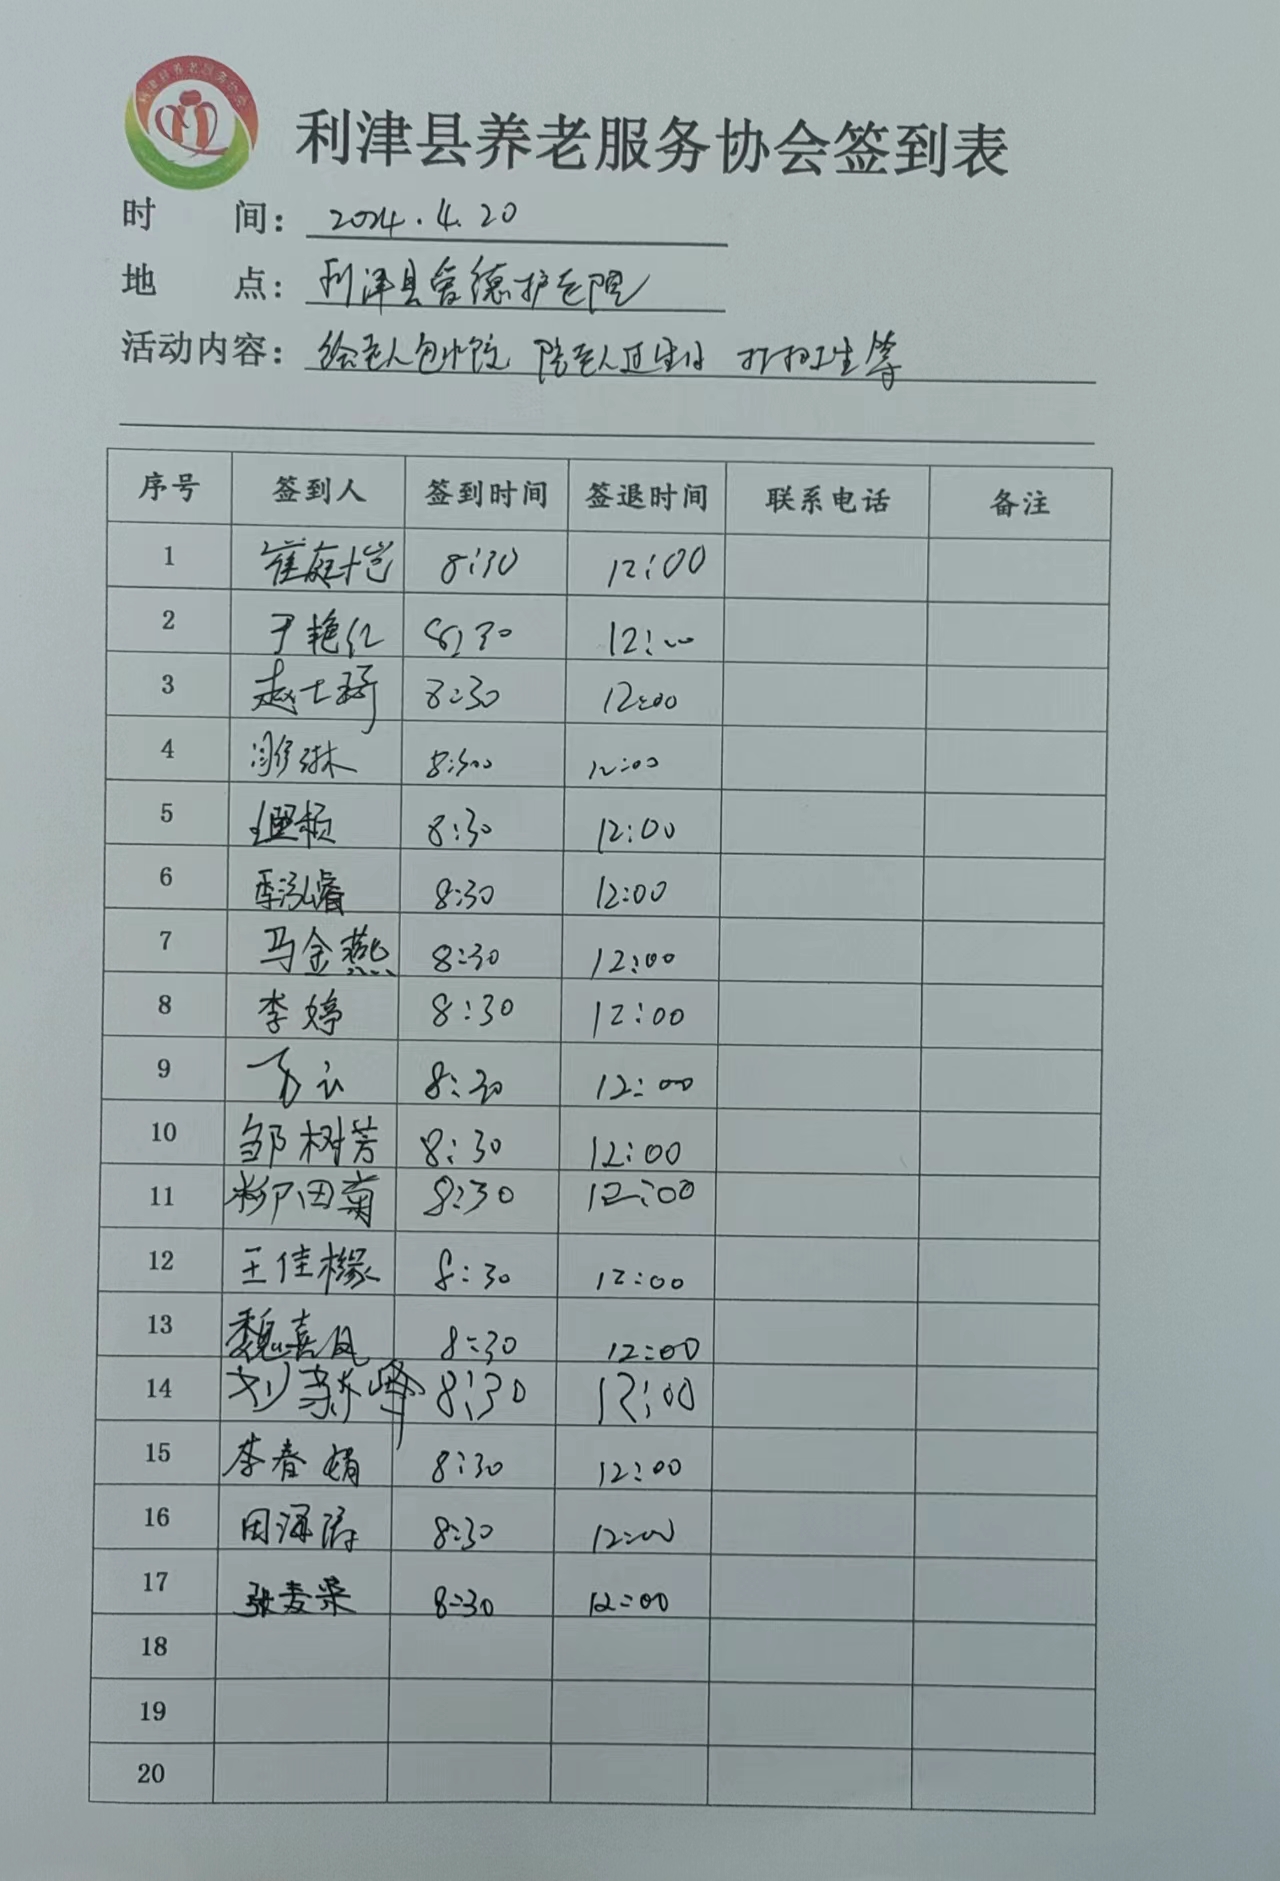 利津县养老服务协会
利津县养老服务协会签到表
时 间: 2024.4.20
地 点: 利津县 德护老院
活动内容: 给老人包水饺 陪老人过生日 打扫卫生等
序号 签到人 签到时间 签退时间 联系电话 备注
1 崔庭 8:30 12:00
2 尹艳红 8:30 12:00
3 赵士琦 8:30 12:00
4 琳 8:30 12:00
5 8:30 12:00
6 季泓睿 8:30 12:00
7 马金燕 8:30 12:00
8 李婷 8:30 12:00
9 8:30 12:00
10 邹树芳 8:30 12:00
11 柳田菊 8:30 12:00
12 王佳橼 8:30 12:00
13 魏喜凤 8:30 12:00
14 刘 峰 8:30 12:00
15 李春娟 8:30 12:00
16 田泽涛 8:30 12:00
17 张麦荣 8:30 12:00
18
19
20